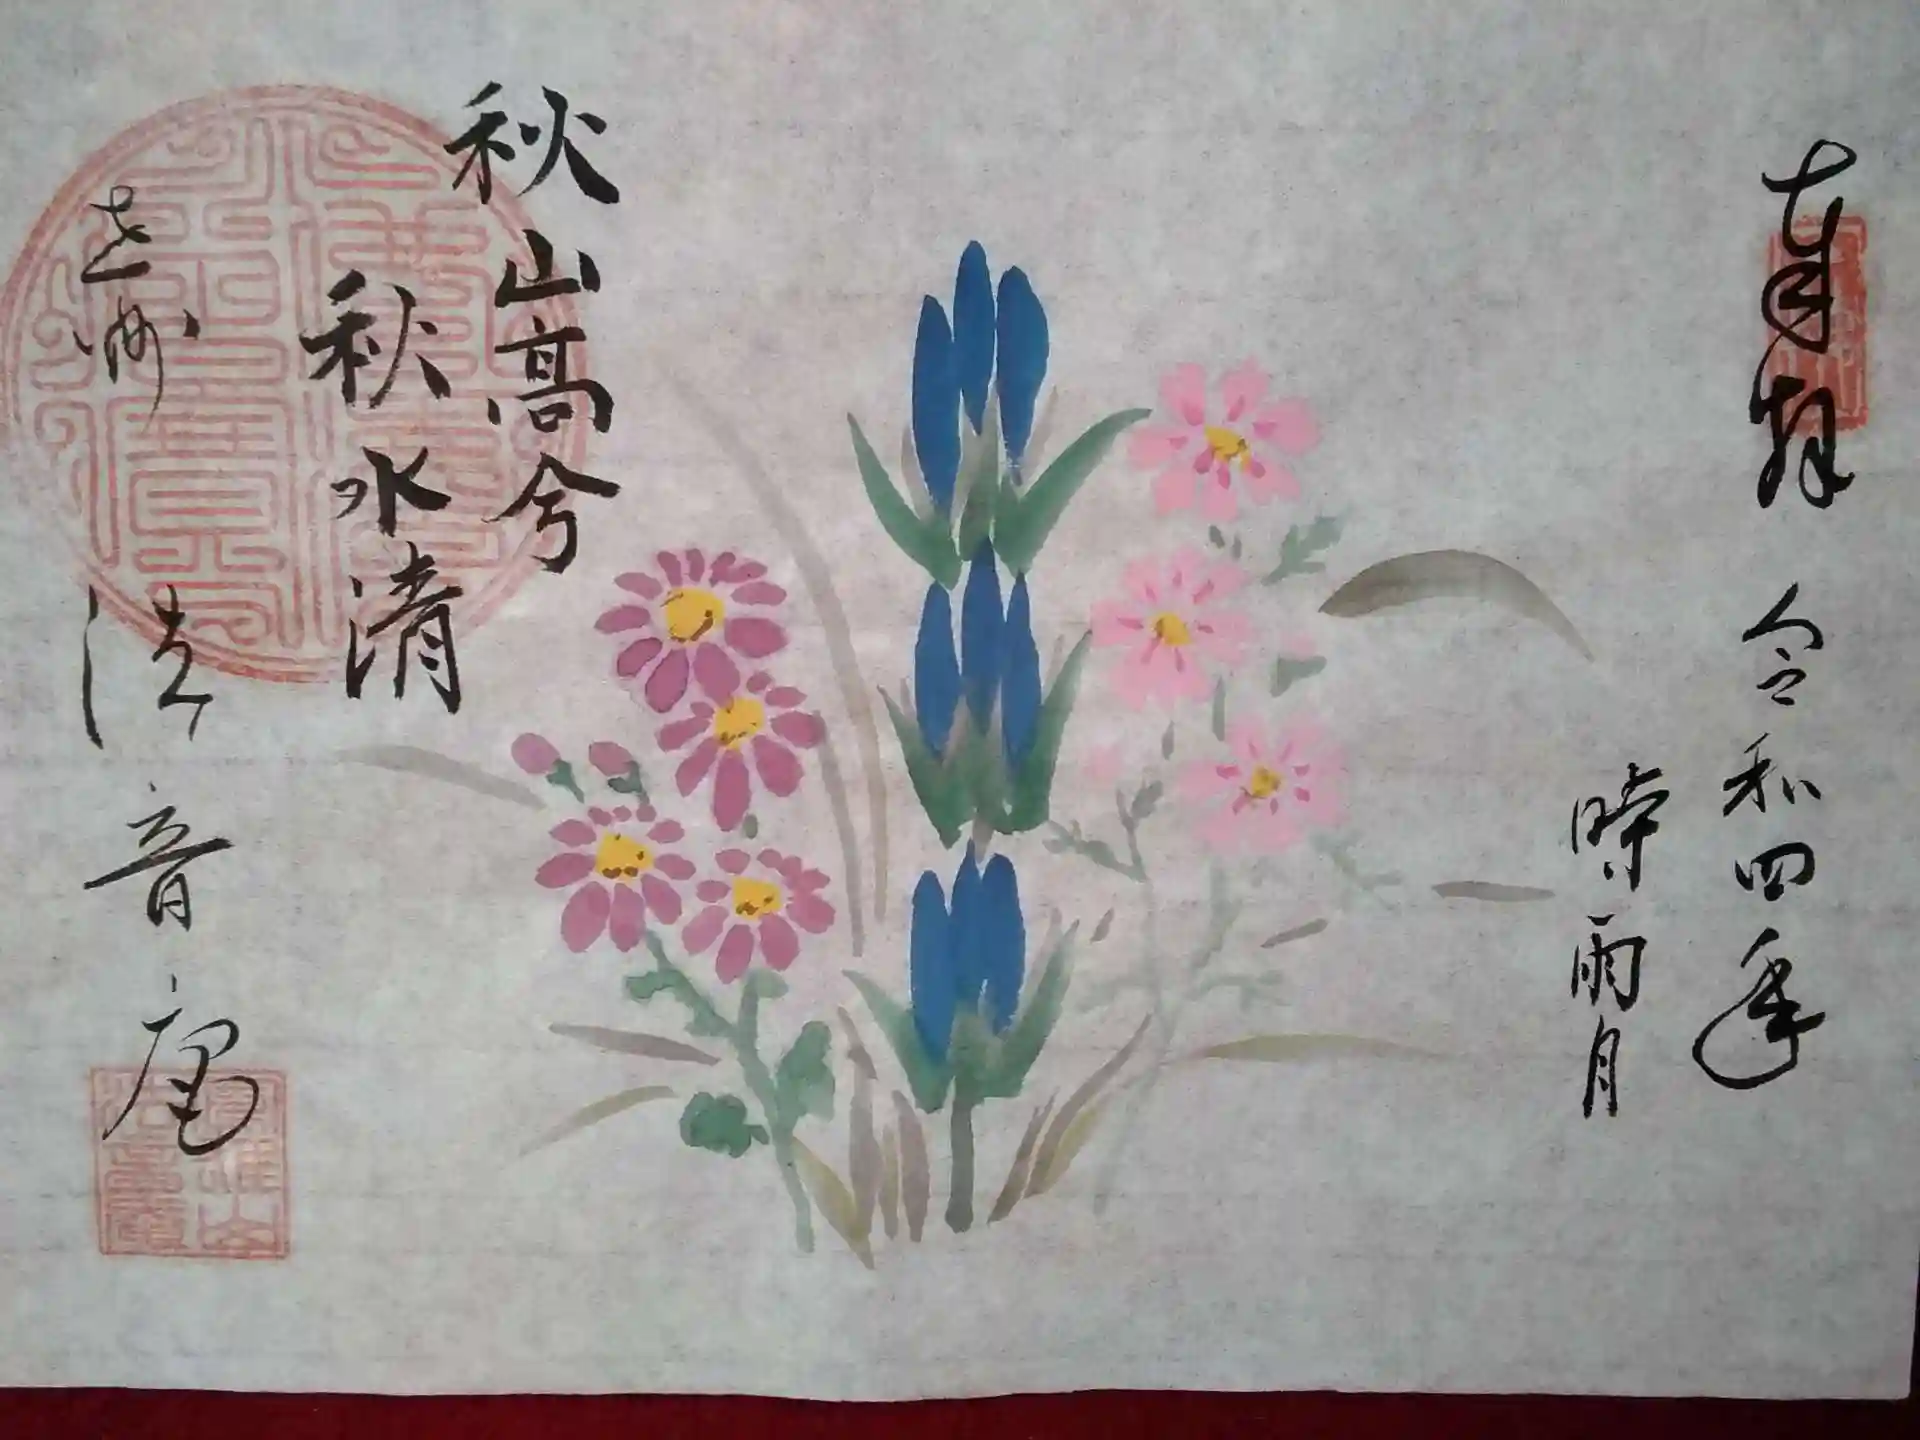 奉拝 令和四年
時雨月
秋山高兮
秋水清
法音庵